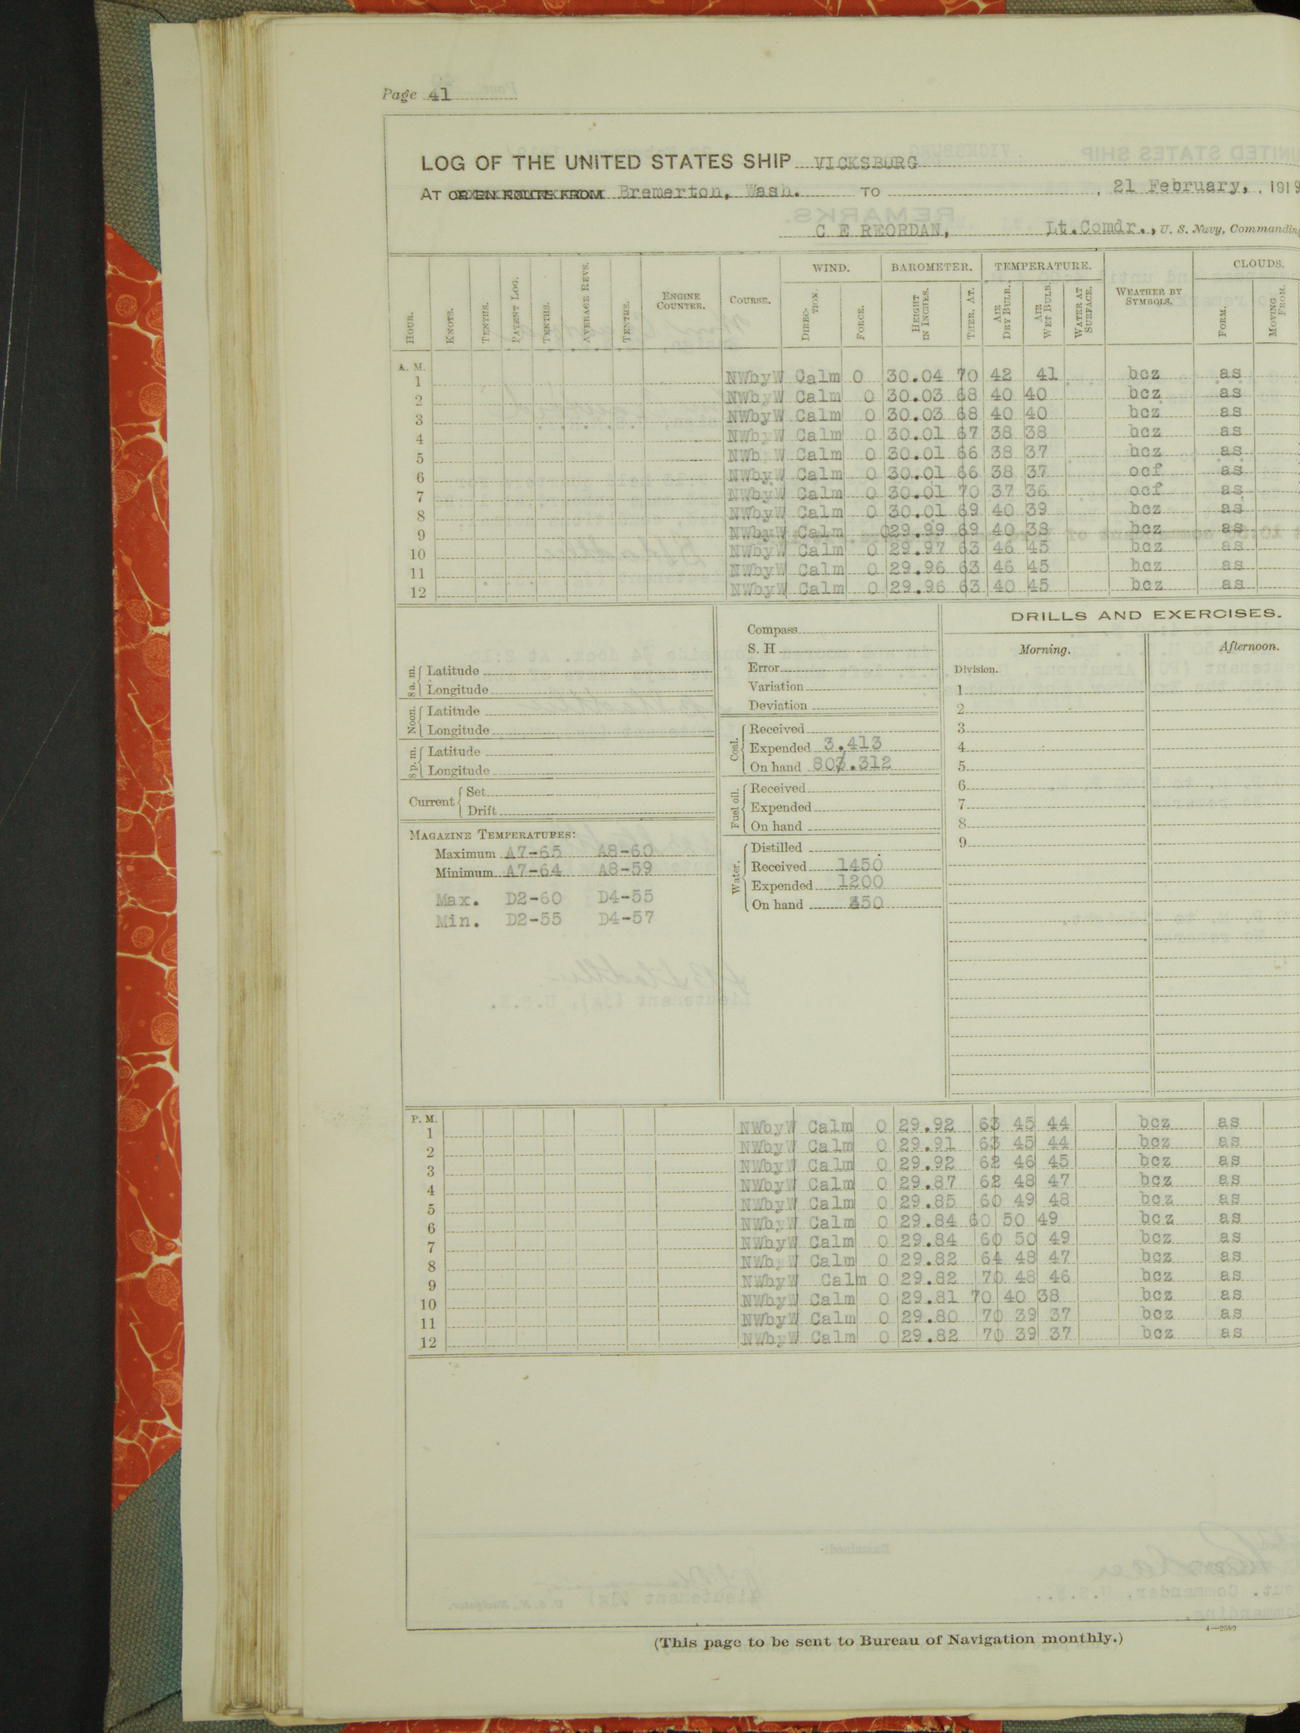 Page 41
LOG OF THE UNITED STATES SHIP VICKSBURG
AT OR EN ROUTE FROM Bremerton, Wash. TO , 21 February, , 1919
C E REORDAN, Lt.Comdr., U. S. Navy, Commanding
WIND. BAROMETER. TEMPERATURE. CLOUDS.
HOUR. KNOTS. TENTHS. PATENT LOG. TENTHS. AVERAGE REVS. TENTHS. ENGINE COUNTER. COURSE. DIREC-TION. FORCE. HEIGHT IN INCHES. THER. AT. AIR DRY BULB. AIR WET BULB. WATER AT SURFACE. WEATHER BY SYMBOLS. FORM. MOVING FROM.
A. M.
1 NWbyW Calm 0 30.04 70 42 41 bcz as
2 NWbyW Calm 0 30.03 68 40 40 bcz as
3 NWbyW Calm 0 30.03 68 40 40 bcz as
4 NWbyW Calm 0 30.01 67 38 38 bcz as
5 NWbyW Calm 0 30.01 66 38 37 bcz as
6 NWbyW Calm 0 30.01 66 38 37 ocf as
7 NWbyW Calm 0 30.01 70 37 36 ocf as
8 NWbyW Calm 0 30.01 69 40 39 bcz as
9 NWbyW Calm 0 29.99 69 40 38 bcz as
10 NWbyW Calm 0 29.97 63 46 45 bcz as
11 NWbyW Calm 0 29.96 63 46 45 bcz as
12 NWbyW Calm 0 29.96 63 40 45 bcz as
8 a. m. Latitude
Longitude
Noon. Latitude
Longitude
8 p. m. Latitude
Longitude
Current Set
Drift
MAGAZINE TEMPERATURES:
Maximum A7-65 A8-60
Minimum A7-64 A8-59
Max. D2-60 D4-55
Min. D2-55 D4-57
Compass
S. H
Error
Variation
Deviation
Coal. Received
Expended 3.413
On hand 803.312
Fuel oil. Received
Expended
On hand
Water. Distilled
Received 1450
Expended 1200
On hand 50
DRILLS AND EXERCISES.
Morning. Afternoon.
Division.
1
2
3
4
5
6
7
8
9
P. M.
1 NWbyW Calm 0 29.92 63 45 44 bcz as
2 NWbyW Calm 0 29.91 63 45 44 bcz as
3 NWbyW Calm 0 29.92 62 46 45 bcz as
4 NWbyW Calm 0 29.87 62 48 47 bcz as
5 NWbyW Calm 0 29.85 60 49 48 bcz as
6 NWbyW Calm 0 29.84 60 50 49 bcz as
7 NWbyW Calm 0 29.84 60 50 49 bcz as
8 NWbyW Calm 0 29.82 64 48 47 bcz as
9 NWbyW Calm 0 29.82 70 48 46 bcz as
10 NWbyW Calm 0 29.81 70 40 38 bcz as
11 NWbyW Calm 0 29.80 70 39 37 bcz as
12 NWbyW Calm 0 29.82 70 39 37 bcz as
(This page to be sent to Bureau of Navigation monthly.)